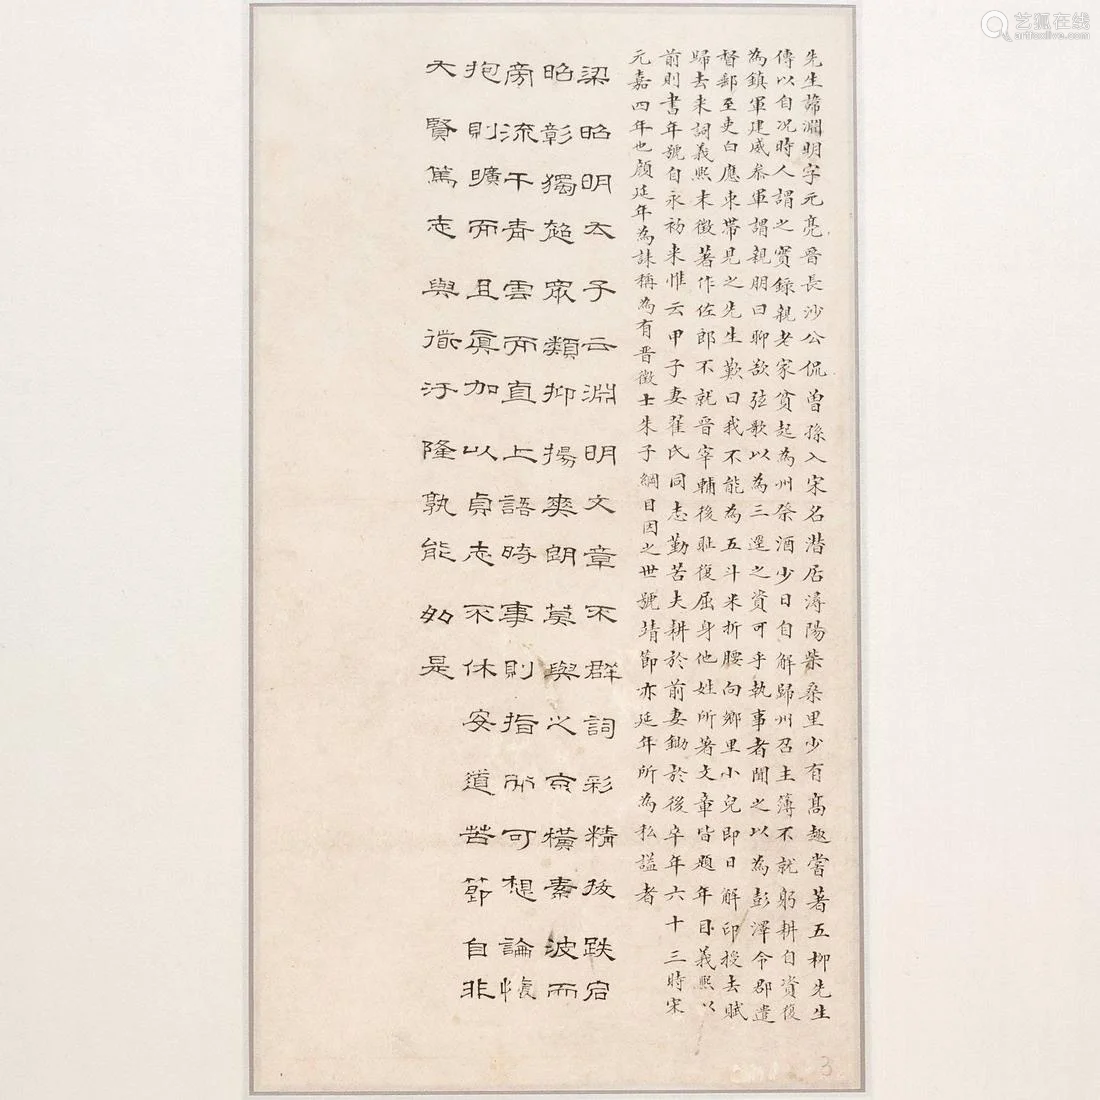 先生諱淵明字元亮晉長沙公侃曾孫入宋名潛居潯陽柴桑里少有高趣嘗著五柳先生
傳以自况時人謂之實錄親老家貧起為州祭酒少日自解歸州召主簿不就躬耕自資復
為鎮軍建威參軍謂親朋曰聊欲弦歌以為三逕之資可乎執事者聞之以為彭澤令郡遣
督郵至吏白應束帶見之先生歎曰我不能為五斗米折腰向鄉里小兒即日解印授去賦
歸去來詞義熙末徵著作佐郎不就晉宰輔後恥復屈身他姓所著文章皆題年目義熙以
前則書年號自永初來惟云甲子妻翟氏同志勤苦夫耕於前妻鋤於後卒年六十三時宋
元嘉四年也顏延年為誄稱為有晉徵士朱子綱目因之世號靖節亦延年所為私謚者
梁昭明太子云淵明文章不群詞彩精拔跌宕
昭彰獨超眾類抑揚爽朗莫與之京橫素波而
旁流干青雲而直上語時事則指而可想論懷
抱則曠而且真加以貞志不休安道苦節自非
大賢篤志與道汙隆孰能如是
3
艺狐在线
artfoxlive.com